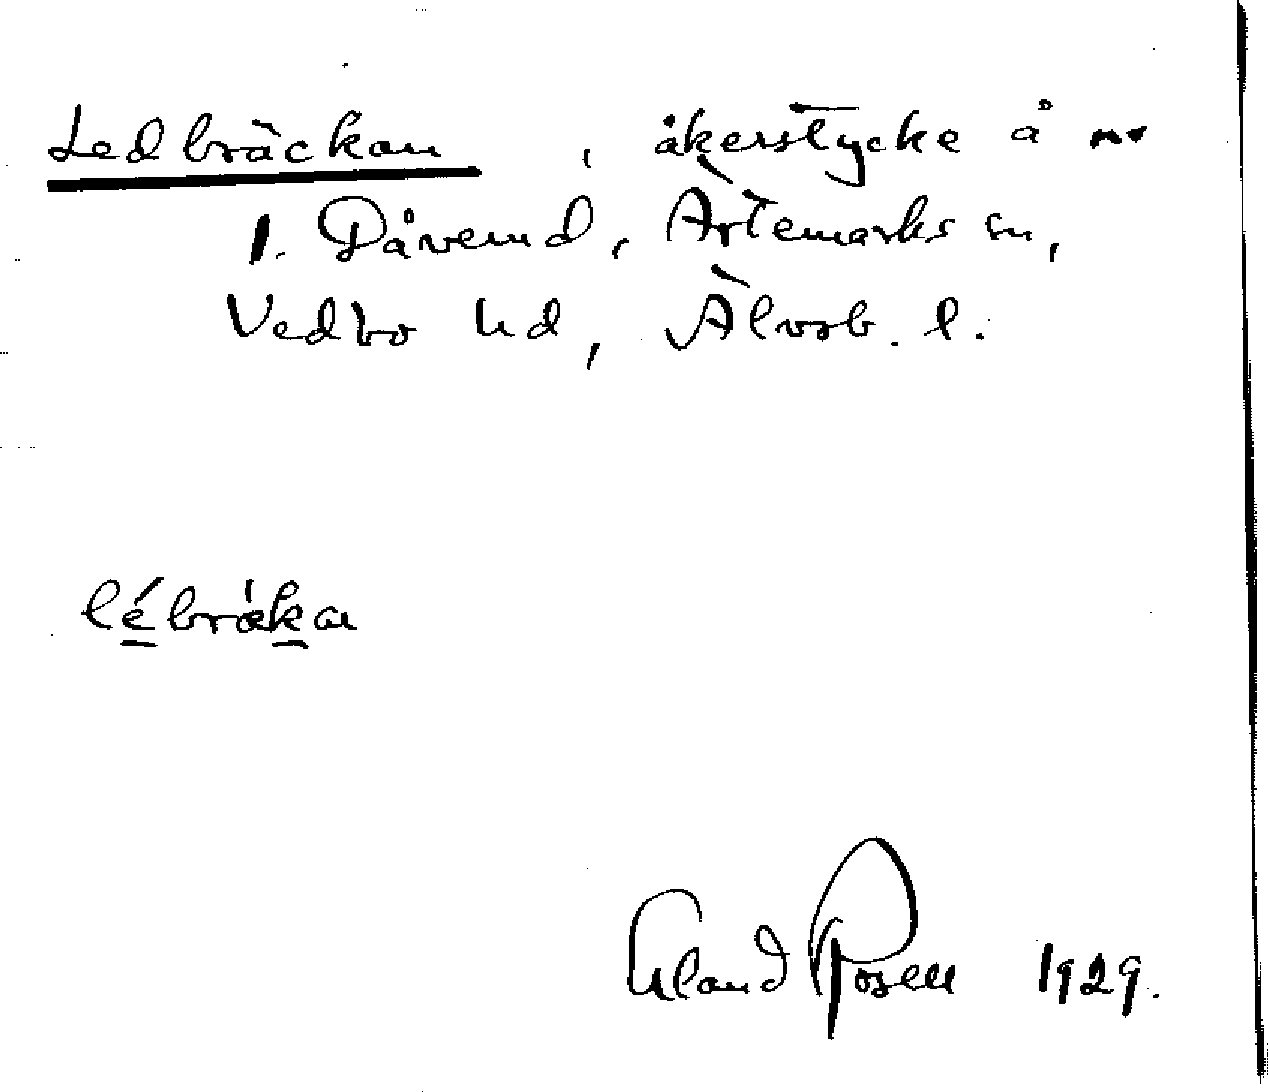 Ledbräckan, åkerstycke å nr
1. Dåverud, Ärtemarks sn,
Vedbo hd, Älvsb. l.
lébrǽka
Erland Rosell 1929.